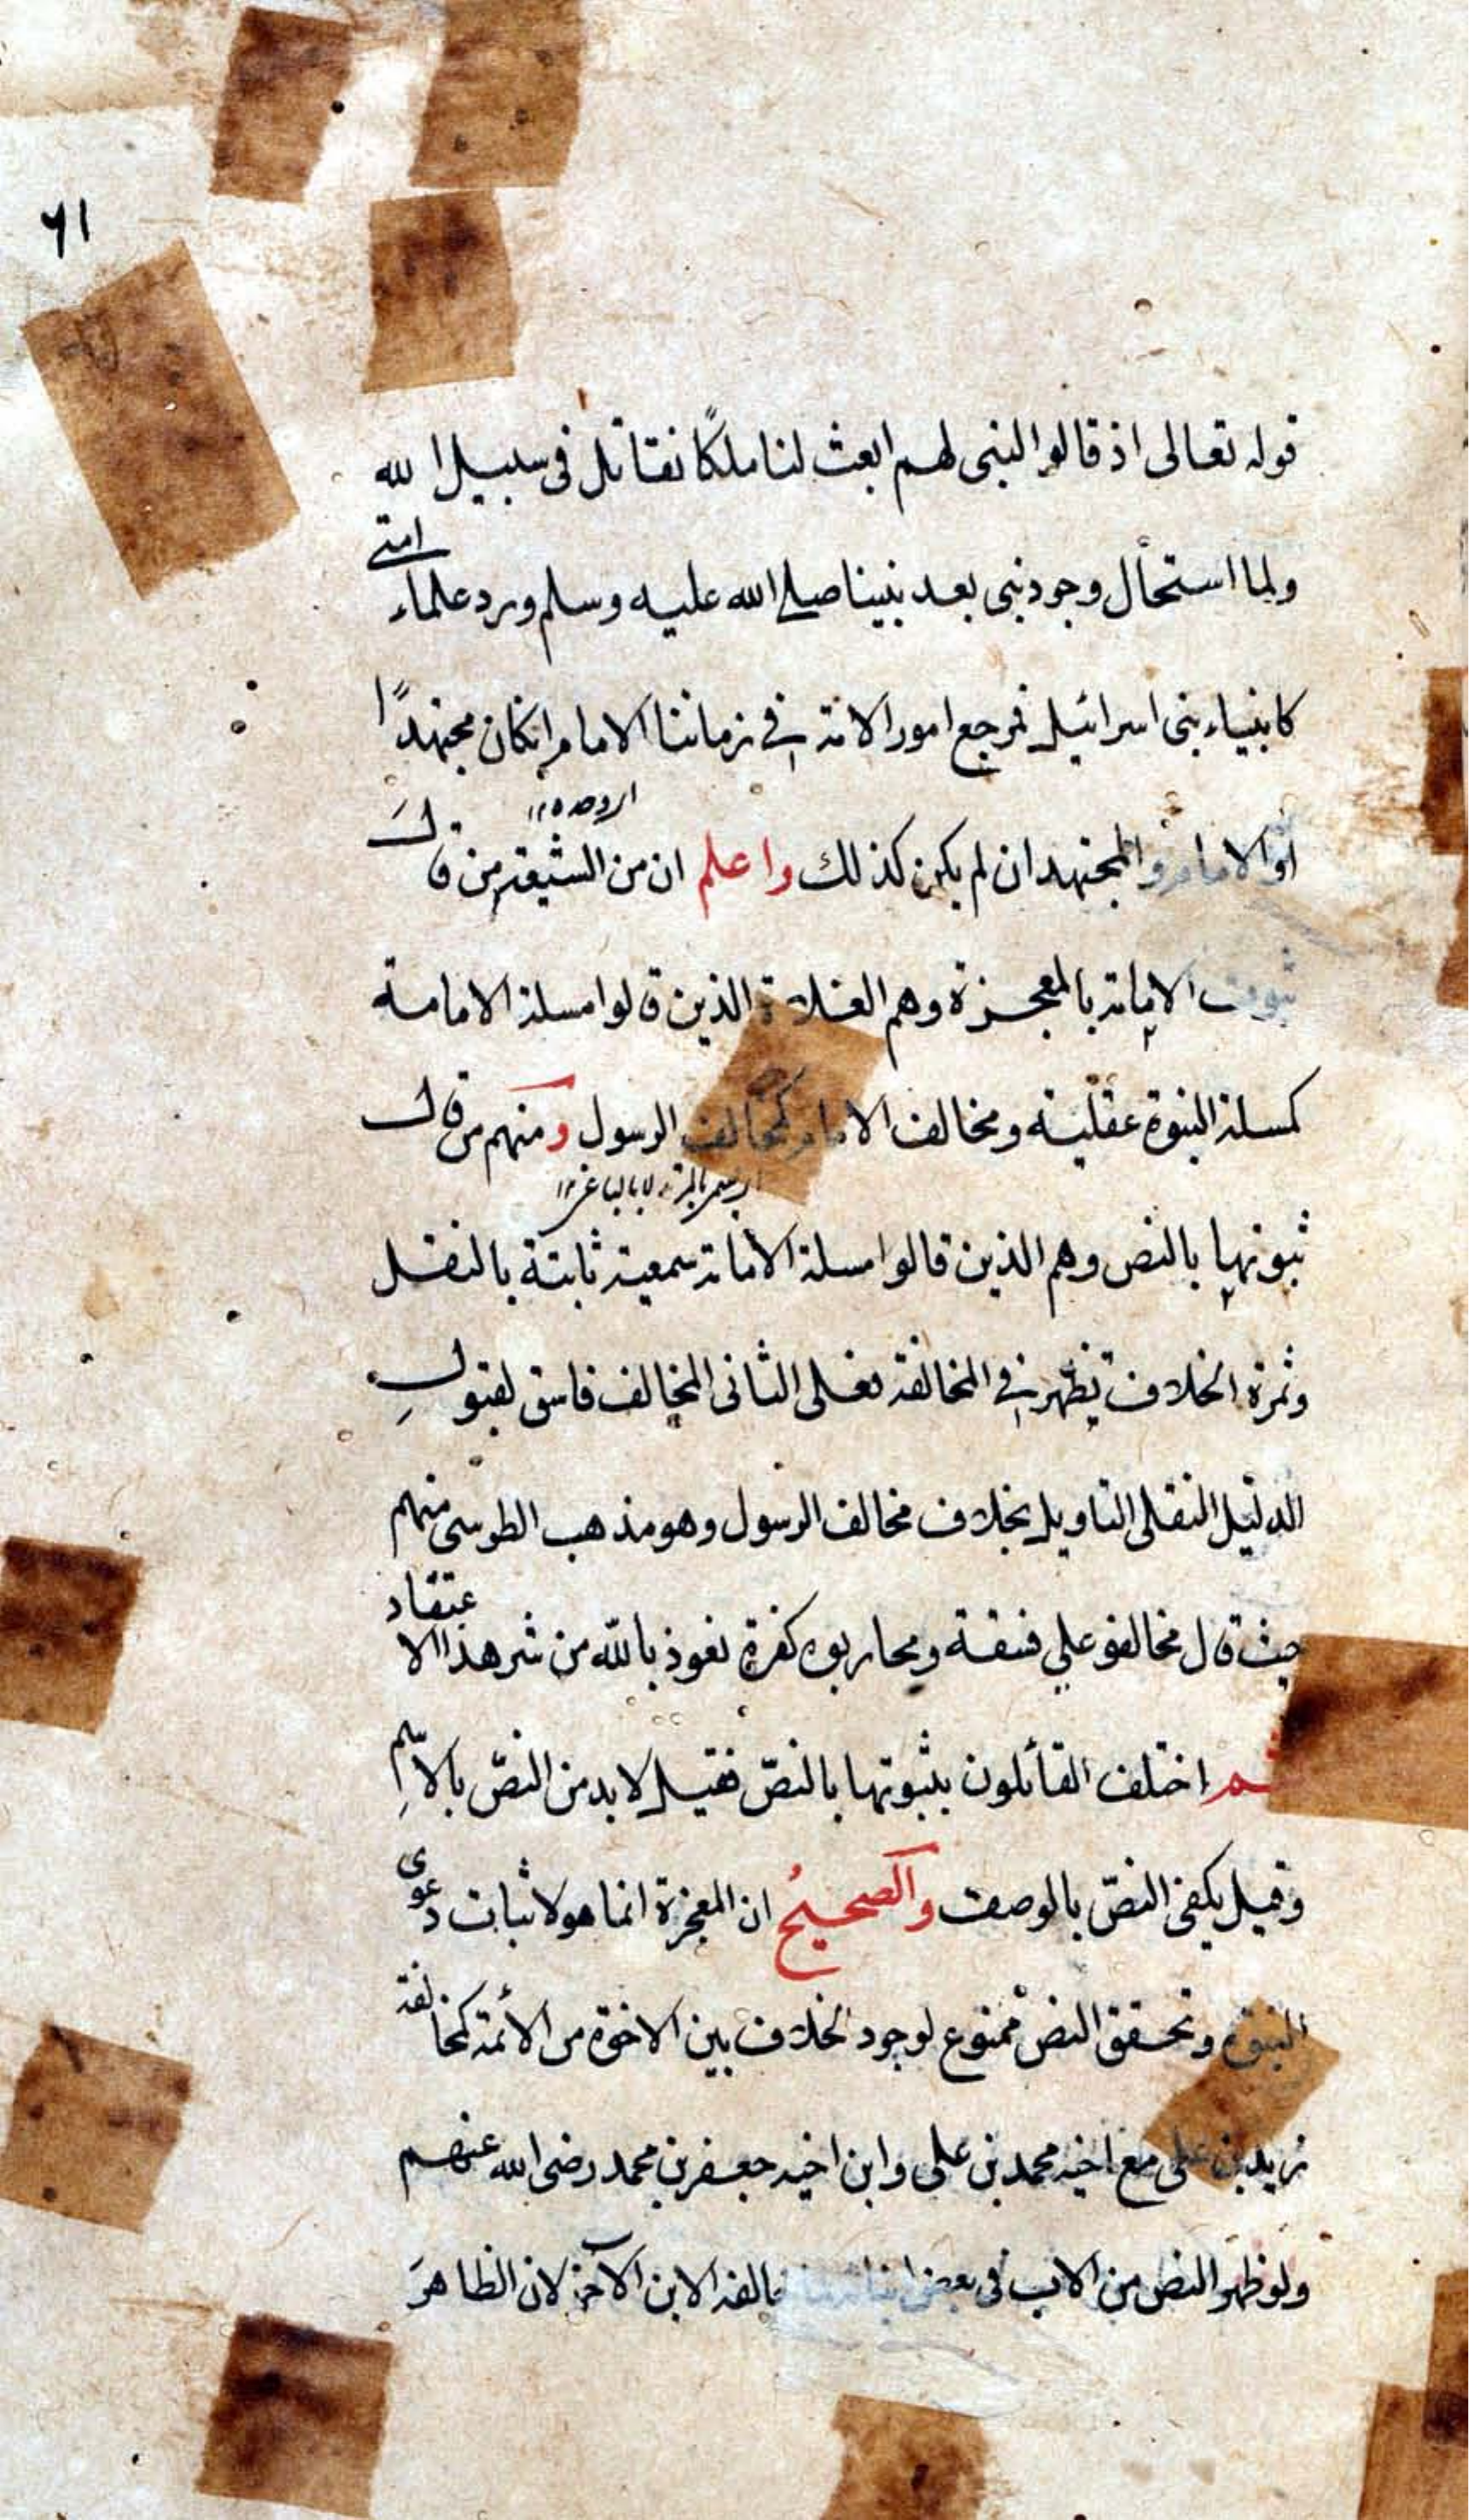 ٦١
قوله تعالى اذ قالوا لنبى لهم ابعث لنا ملكًا نقاتل فى سبيل الله
ولما استحال وجود نبى بعد نبينا صلى الله عليه وسلم وورد علماء امتى
كانبياء بنى اسرائيل فمرجع امور الامة فى زماننا الامام انكان مجتهدًا
او الامام والمجتهد ان لم يكن كذلك واعلم ان من الشيعة من قال
ثبوت الامامة بالمعجزة وهم الغلاة الذين قالوا مسلة الامامة
كمسلة النبوة عقلية ومخالف الامام كمخالف الرسول ومنهم من قال
ثبوتها بالنص وهم الذين قالوا مسلة الامامة سمعية ثابتة بالنقل
وثمرة الخلاف تظهر فى المخالفة فعلى الثانى المخالف فاسق لقبول
الدليل النقلى التاويل بخلاف مخالف الرسول وهو مذهب الطوسى منهم
حيث قال مخالفو على فسقة ومحاربوه كفرة نعوذ بالله من شر هذا الاعتقاد
ثم اختلف القائلون بثبوتها بالنصّ فقيل لا بد من النصّ بالاسم
وقيل يكفى النصّ بالوصف والصحيح ان المعجزة انما هو لاثبات دعوى
النبوة وتحقق النص ممنوع لوجود الخلاف بين الاخوة من الأئمة كمخالفة
زيد بن على مع اخيه محمد بن على وابن اخيه جعفر بن محمد رضى الله عنهم
ولو ظهر النص من الاب فى بعض خالفه الابن الآخر لان الظاهر